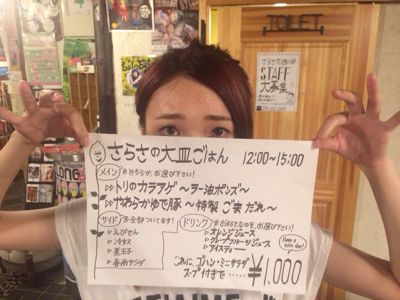 TOILET
STAFF
大募集
さらさの大皿ごはん 12:00～15:00
メイン ※どちらか、お選び下さい!
▷▷トリのカラアゲ ～ラー油ポンズ～
▷▷やわらかゆで豚 ～特製 ごまだれ～
サイド ※全部ついてます!
▷えびせん
▷冷奴
▷煮玉子
▷春雨サラダ
ドリンク ※お好きなのを、お選び下さい!
▷オレンジジュース
▷グレープフルーツジュース
▷アイスティー
これに、ゴハン・ミニサラダ
スープ付きで……
¥1,000
Have a nice day!